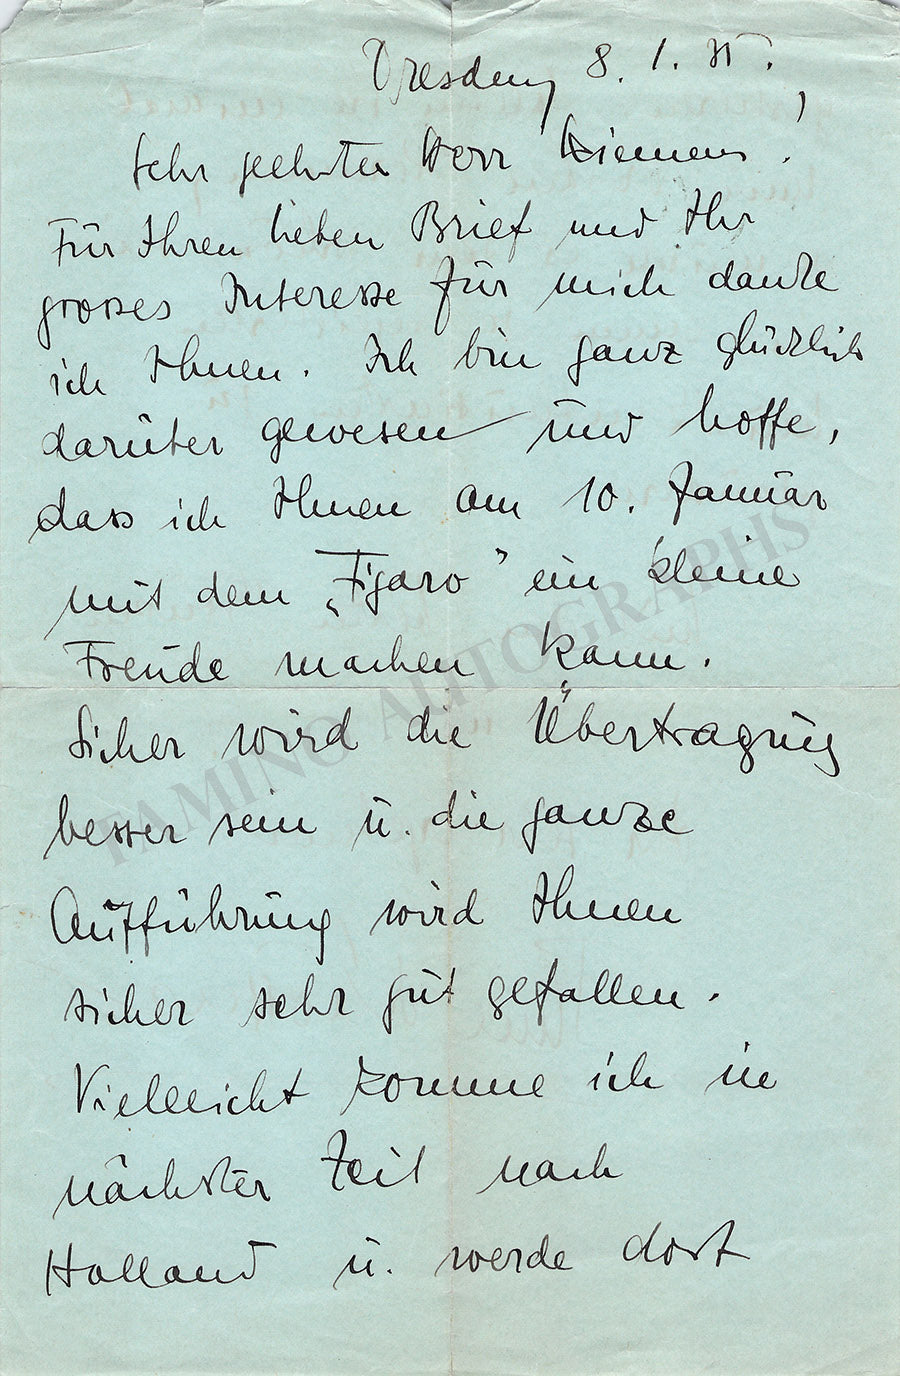 Dresden, 8. 1. 35.
Sehr geehrter Herr Ziemens!
Für Ihren lieben Brief und Ihr
grosses Interesse für mich danke
ich Ihnen. Ich bin ganz glücklich
darüber gewesen und hoffe,
dass ich Ihnen am 10. Januar
mit dem „Figaro" ein kleine
Freude machen kann.
Sicher wird die Übertragung
besser sein u. die ganze
Aufführung wird Ihnen
sicher sehr gut gefallen.
Vielleicht komme ich in
nächster Zeit nach
Holland u. werde dort
TAMINO AUTOGRAPHS